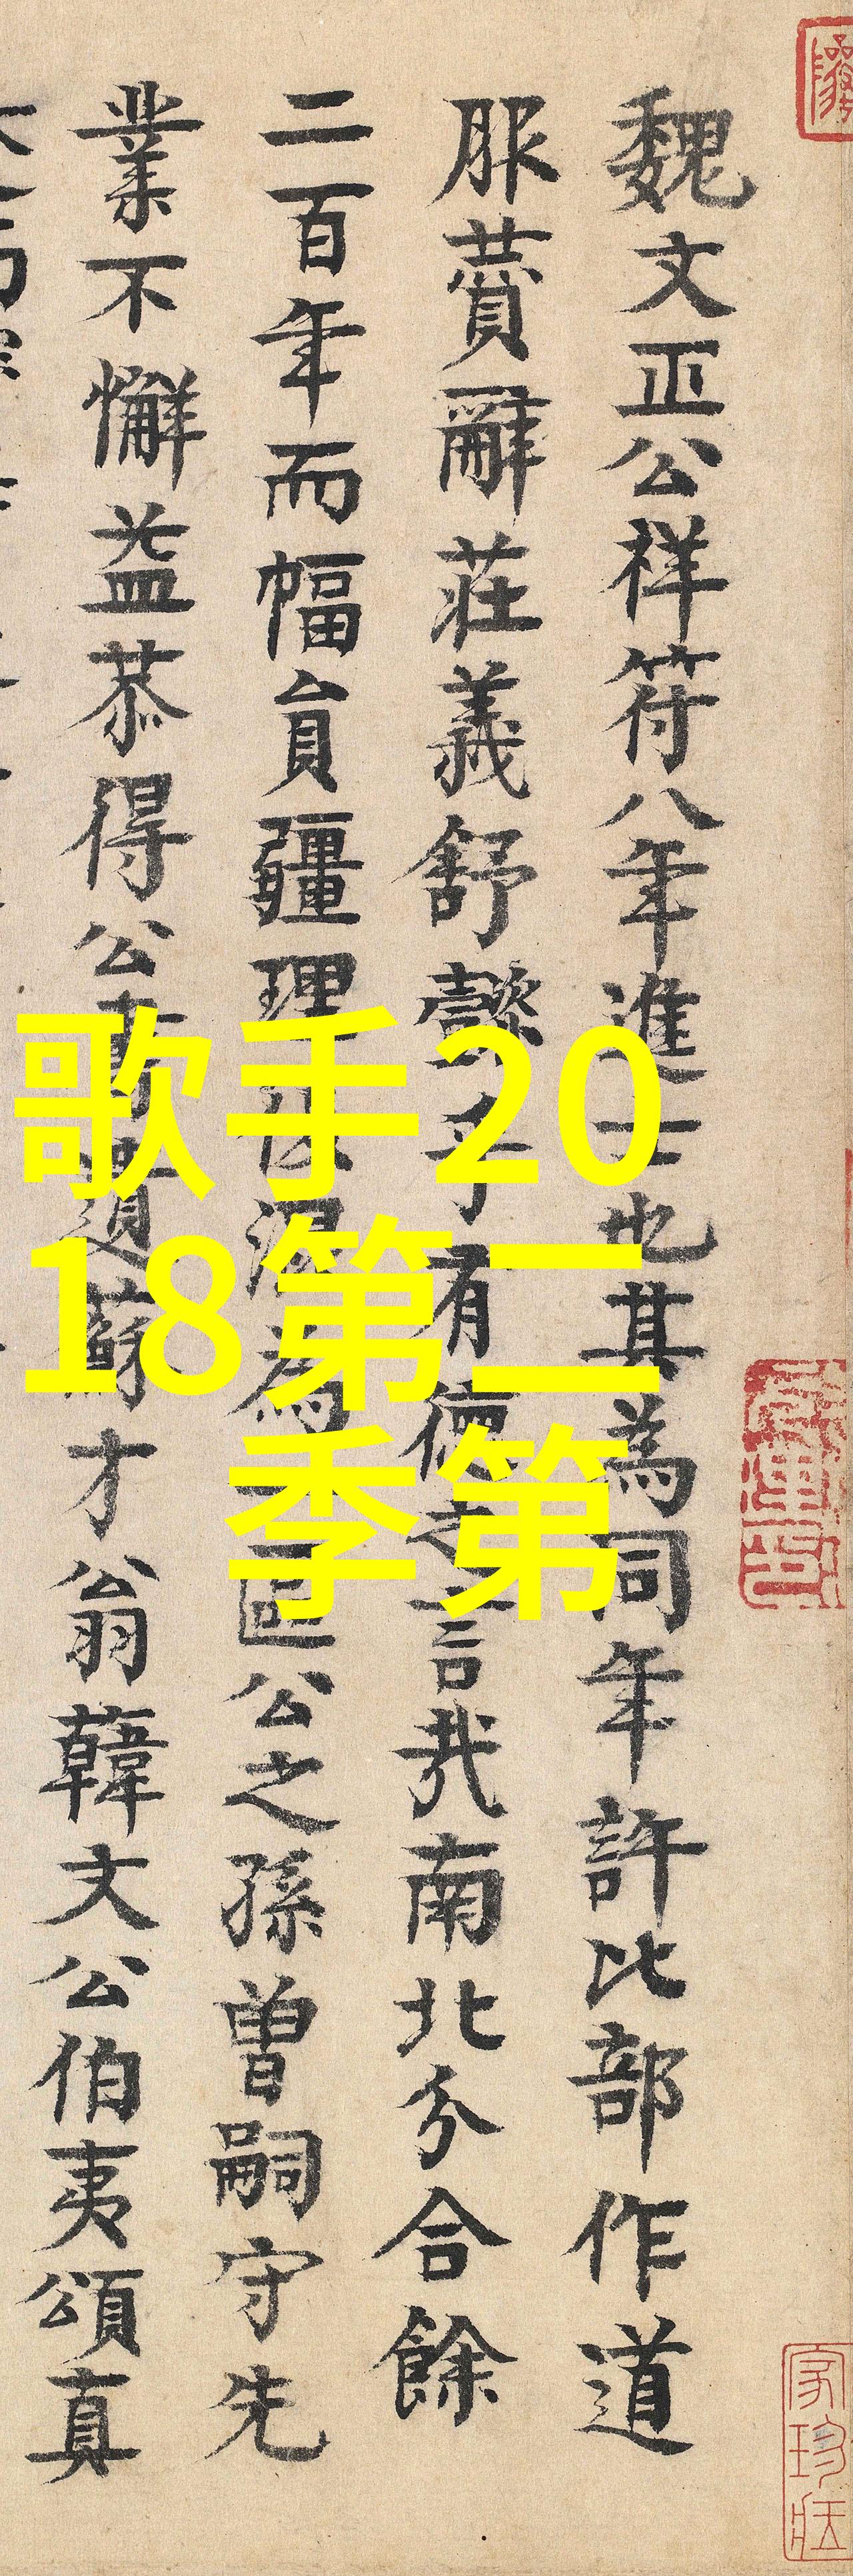 魏文正公祥符八年進士也其為同年許比部作道
服贊辭莊義舒懿乎有德之言哉南北分合餘
二百年而幅員疆理保混為一區公之孫曾嗣守先
業不懈益恭得公書遺蘇才翁韓文公伯夷頌真
歌手20
18第二
季第
家珍